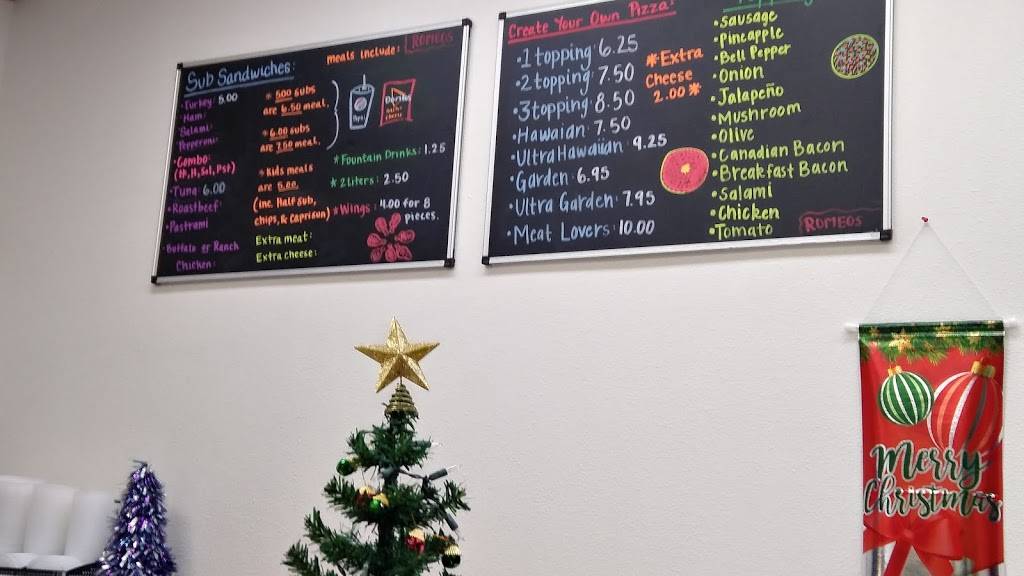 Sub Sandwiches:
• Turkey: 5.00
• Ham:
• Salami:
• Pepperoni:
• Combo:
(H, H, Sal, Pst)
• Tuna: 6.00
• Roastbeef:
• Pastrami
• Buffalo or Ranch
Chicken:
meals include:
ROMEOS
* 500 subs
are 6.50 meal.
* 6.00 subs
are 7.50 meal.
* kids meals
are 5.00.
(inc. Half sub,
chips, & Caprisun)
Extra meat:
Extra cheese:
Doritos
* Fountain Drinks: 1.25
* 2 liters: 2.50
* Wings: 4.00 for 8
pieces.
Create Your Own Pizza:
• 1 topping 6.25
• 2 topping 7.50
• 3 topping 8.50
• Hawaiian 7.50
• Ultra Hawaiian 9.25
• Garden 6.95
• Ultra Garden 7.95
• Meat Lovers 10.00
*Extra
Cheese
2.00*
• Sausage
• Pineapple
• Bell Pepper
• Onion
• Jalapeño
• Mushroom
• Olive
• Canadian Bacon
• Breakfast Bacon
• Salami
• Chicken
• Tomato
ROMEOS
Merry
Christmas